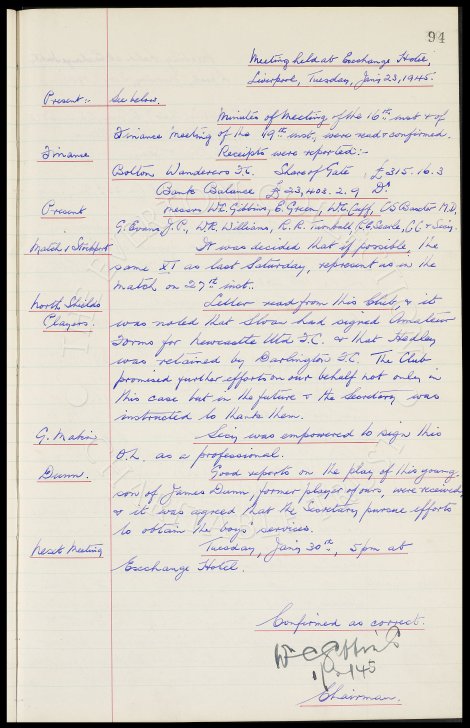 94
Meeting held at Exchange Hotel,
Liverpool, Tuesday, Jan'y 23, 1945.
Present:- See below.
Minutes of Meeting of the 16th inst & of
Finance Meeting of the 19th inst, were read & confirmed.
Finance Receipts were reported:-
Bolton Wanderers F.C. Share of Gate £315.16.3
Bank Balance £23,403.2.9 Dr.
Present Messrs W.C. Gibbins, E. Green, W.C. Cuff, C.S. Baxter M.D.,
G. Evans J.P., W.R. Williams, R.R. Turnbull, & Secy.
Match v Stockport It was decided that if possible, the
same XI as last Saturday, represent us in the
match on 27th inst.
North Shields Letter read from this Club, & it
Players. was noted that Sloan had signed Amateur
Forms for Newcastle Utd F.C. & that Hedley
was retained by Darlington F.C. The Club
promised further efforts on our behalf not only in
this case but in the future & the Secretary was
instructed to thank them.
G. Makin Secy was empowered to sign this
as a professional.
Dunn. Good reports on the play of this young
son of James Dunn, former player of ours, were received
& it was agreed that the Secretary pursue efforts
to obtain the boys' services.
Next Meeting Tuesday, Jan'y 30th, 5pm at
Exchange Hotel.
Confirmed as correct.
W C Gibbins
Chairman.